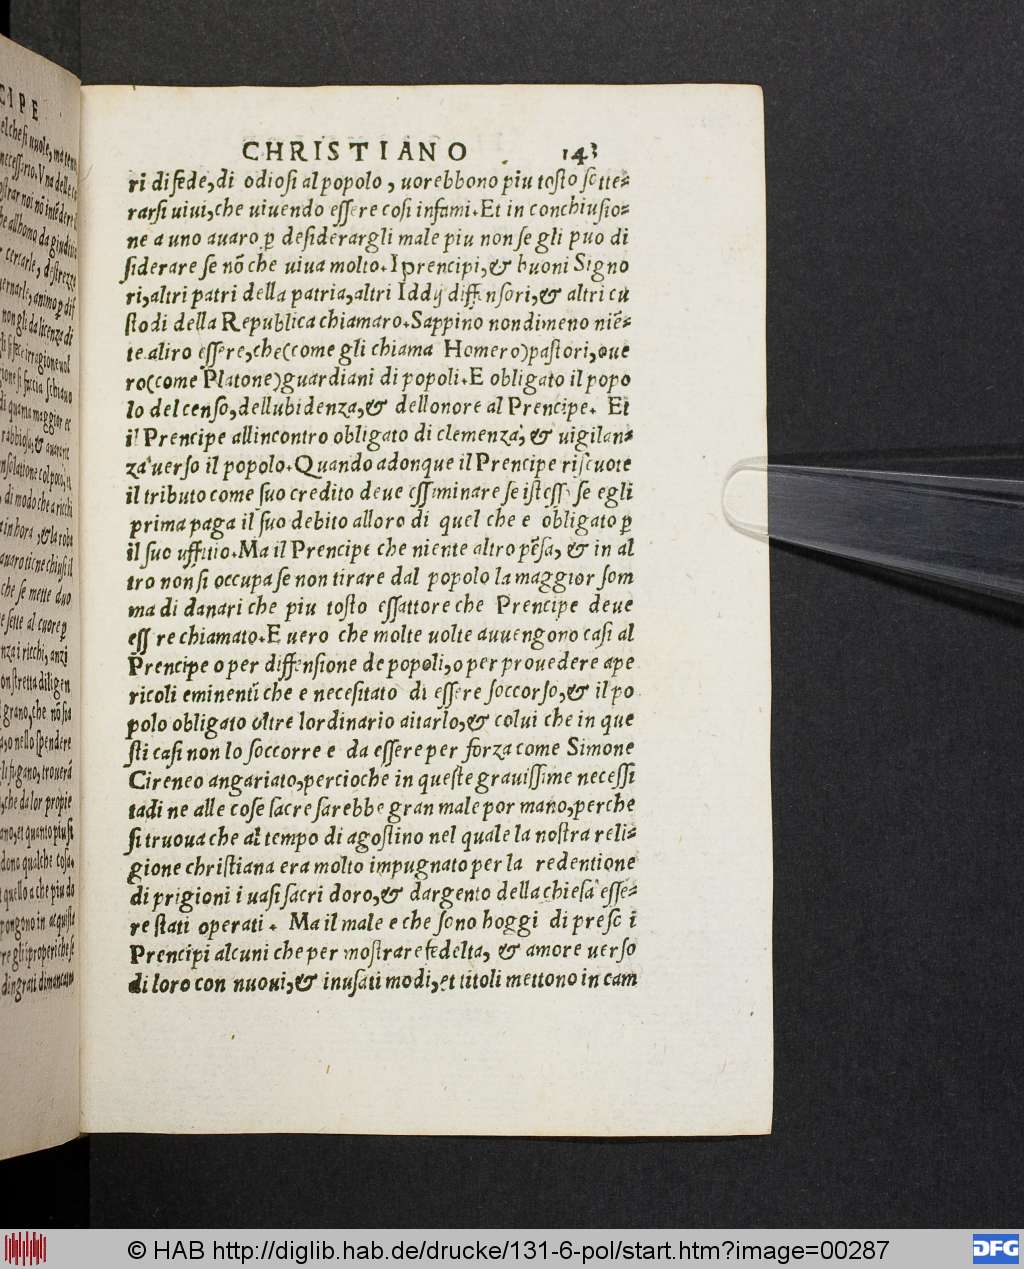 CIPE
CHRISTIANO 143
ri di fede, di odiosi al popolo, uorebbono piu tosto sotter-
rarsi uiui, che uiuendo essere cosi infami. Et in conchiusio-
ne a uno auaro ꝑ desiderargli male piu non se gli puo di
siderare se nõ che uiua molto. I prencipi, & buoni Signo
ri, altri patri della patria, altri Iddij diffensori, & altri cu
stodi della Republica chiamaro. Sappino nondimeno niẽ-
te altro essere, che (come gli chiama Homero) pastori, oue
ro (come Platone) guardiani di popoli. E obligato il popo
lo del censo, dellubidenza, & dellonore al Prencipe. Et
il Prencipe allincontro obligato di clemenza, & uigilan-
za uerso il popolo. Quando adonque il Prencipe riscuote
il tributo come suo credito deue essiminare se istesso se egli
prima paga il suo debito alloro di quel che e obligato ꝑ
il suo uffitio. Ma il Prencipe che niente altro pẽsa, & in al
tro non si occupa se non tirare dal popolo la maggior som
ma di danari che piu tosto essattore che Prencipe deue
ess re chiamato. E uero che molte uolte auuengono casi al
Prencipe o per diffensione de popoli, o per prouedere a pe
ricoli eminenti che e necesitato di essere soccorso, & il po
polo obligato oltre lordinario aitarlo, & colui che in que
sti casi non lo soccorre e da essere per forza come Simone
Cireneo angariato, percioche in queste grauissime necessi
tadi ne alle cose sacre sarebbe gran male por mano, perche
si truoua che al tempo di agostino nel quale la nostra reli-
gione christiana era molto impugnato per la redentione
di prigioni i uasi sacri doro, & dargento della chiesa esse-
re stati operati. Ma il male e che sono hoggi di preso i
Prencipi alcuni che per mostrare fedelta, & amore uerso
di loro con nuoui, & inusati modi, et titoli mettono in cam
© HAB http://diglib.hab.de/drucke/131-6-pol/start.htm?image=00287
DFG